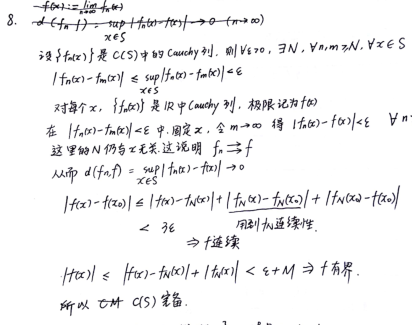 f(x) := lim_{n→∞} f_n(x)
8. d(f_n, f) = sup_{x∈S} |f_n(x) - f(x)| → 0 (n→∞)
设{f_n(x)}是C(S)中的Cauchy列. 则∀ε>0, ∃N, ∀n,m≥N, ∀x∈S
|f_n(x) - f_m(x)| ≤ sup_{x∈S} |f_n(x) - f_m(x)| < ε
对每个x, {f_n(x)}是ℝ中Cauchy列, 极限记为f(x)
在 |f_n(x) - f_m(x)| < ε 中, 固定x, 令m→∞ 得 |f_n(x) - f(x)| < ε ∀n
这里的N仍与x无关. 这说明 f_n ⇉ f
从而 d(f_n, f) = sup_{x∈S} |f_n(x) - f(x)| → 0
|f(x) - f(x_0)| ≤ |f(x) - f_N(x)| + |f_N(x) - f_N(x_0)| + |f_N(x_0) - f(x_0)|
< 3ε 用到f_N连续性.
⇒ f连续
|f(x)| ≤ |f(x) - f_N(x)| + |f_N(x)| < ε + M ⇒ f有界.
所以 C(S)完备.